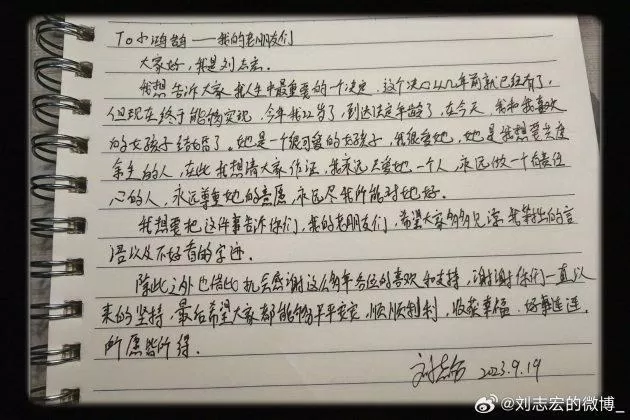 To小鸿鹄——我的老朋友们
大家好，我是刘志宏。
我想告诉大家我人生中最重要的一个决定，这个决心几年前就已经有了，
但现在终于能够实现，今年我22岁了，到达法定年龄了，在今天，我和我喜欢
的女孩子结婚了。她是一个很可爱的女孩子，我很爱她，她是我想要共度
余生的人，在此我想请大家作证，我永远只爱她一个人，永远做一个有责任
心的人，永远尊重她的意愿，永远尽我所能对她好。
我想要把这件事告诉你们，我的老朋友们，希望大家多多见谅我笨拙的言
语以及不好看的字迹。
除此之外也借此机会感谢这么多年各位的喜欢和支持，谢谢你们一直以
来的坚持，最后希望大家都能够平平安安，顺顺利利，收获幸福，好事连连，
所愿皆所得。
刘志宏 2023.9.19
@刘志宏的微博_